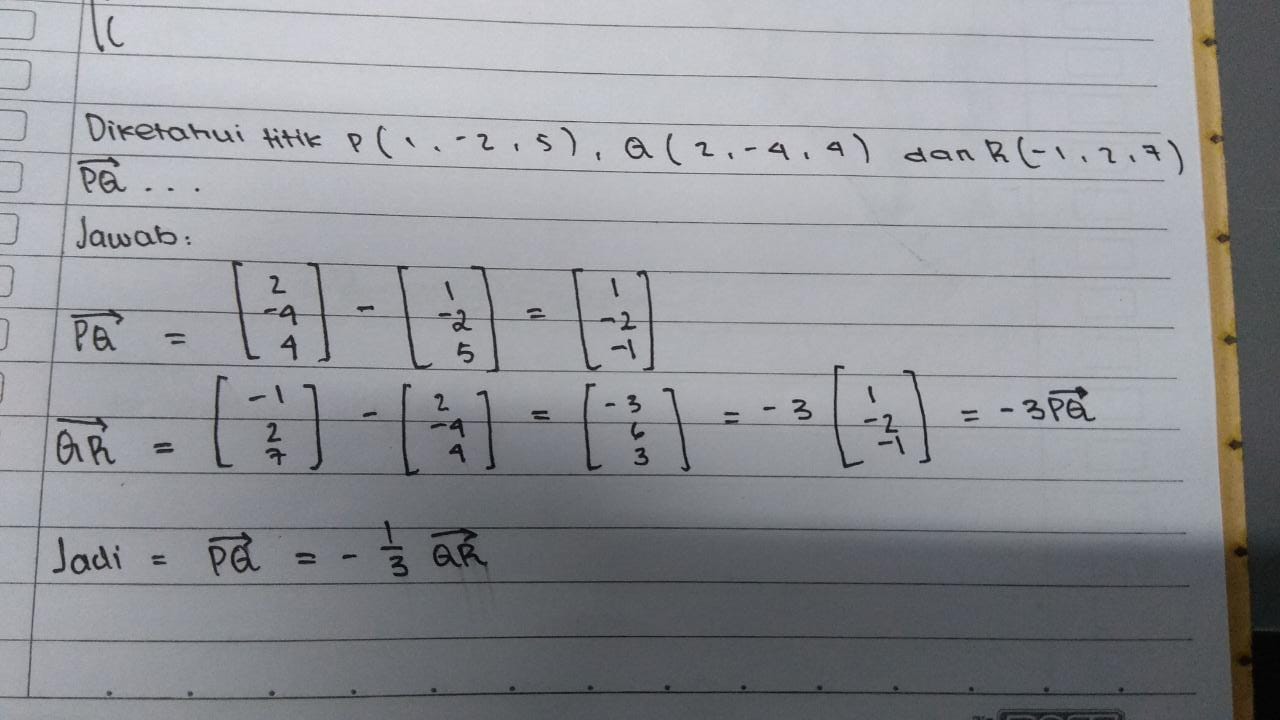 Diketahui titik P(1, -2, 5), Q(2, -4, 4) dan R(-1, 2, 7)
$\overrightarrow{PQ}$ ...
Jawab:
$\overrightarrow{PQ} = \begin{bmatrix} 2 \\ -4 \\ 4 \end{bmatrix} - \begin{bmatrix} 1 \\ -2 \\ 5 \end{bmatrix} = \begin{bmatrix} 1 \\ -2 \\ -1 \end{bmatrix}$
$\overrightarrow{QR} = \begin{bmatrix} -1 \\ 2 \\ 7 \end{bmatrix} - \begin{bmatrix} 2 \\ -4 \\ 4 \end{bmatrix} = \begin{bmatrix} -3 \\ 6 \\ 3 \end{bmatrix} = -3 \begin{bmatrix} 1 \\ -2 \\ -1 \end{bmatrix} = -3\overrightarrow{PQ}$
Jadi = $\overrightarrow{PQ} = -\frac{1}{3} \overrightarrow{QR}$